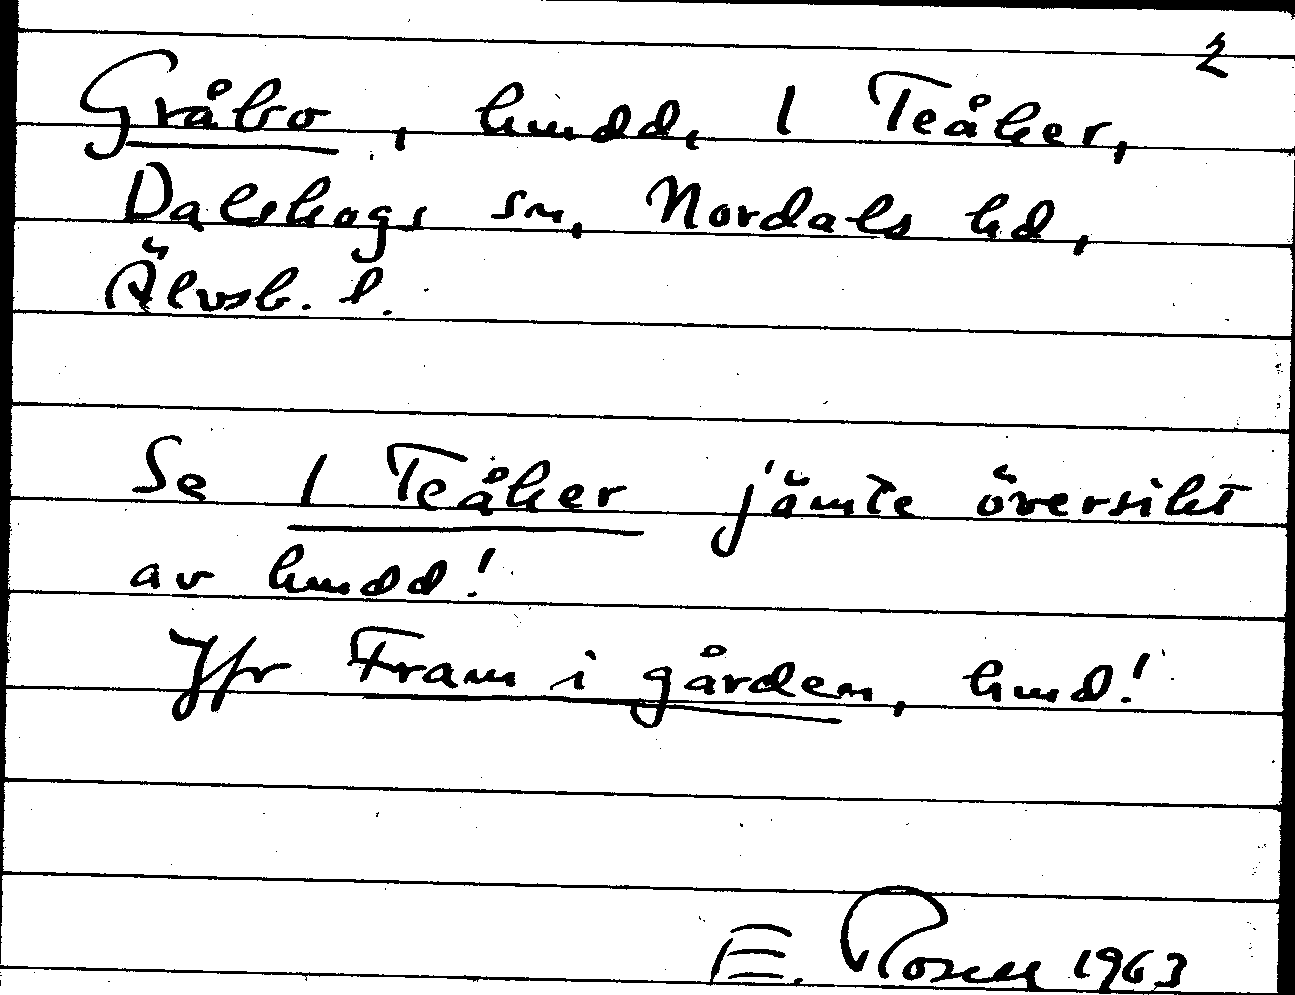 2
Gråbo, hmdd, 1 Teåker,
Dalskogs sn, Nordals hd,
Älvsb. l.
Se 1 Teåker jämte översikt
av hmdd!
Jfr Fram i gården, hmd!
E. Rosell 1963